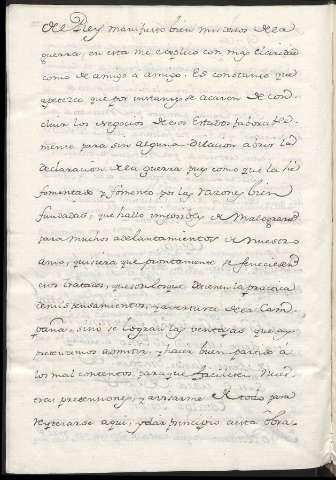 del Rey manifiesto bien mis deseos de la
guerra, en esta me explico con mas claridad
como de amigo a amigo. Es constante que
apetezco que por instantes se acaven de con-
cluir los negocios de esos Estados favorable-
mente para sin alguna dilacion abrir la
declaracion de la guerra, pues como que la he
fomentado y fomento por las razones bien
fundadas, que hallo imposibles de malograrse
para muchos adelantamientos de nuestro
Amo, quisiera que prontamente se feneciesen
esos tratados, que son los que detienen la practica
de mis pensamientos, y avertura de la Cam-
paña, sino se logran las ventajas que
procuramos admitir, y hacer buen partido á
los mal contentos, para que facilite
pretensiones, y avisarme de todo para
aqui, y dar principio a esta obra